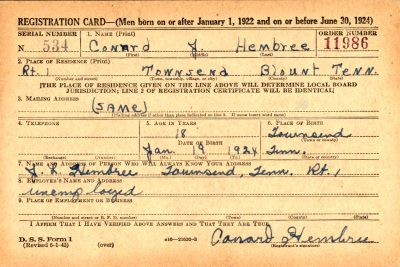 REGISTRATION CARD—(Men born on or after January 1, 1922 and on or before June 30, 1924)
SERIAL NUMBER 1. NAME (Print) ORDER NUMBER
N 534 Conard J. Hembree 11986
(First) (Middle) (Last)
2. PLACE OF RESIDENCE (Print)
Rt. 1 Townsend Blount Tenn.
(Number and street) (Town, township, village, or city) (County) (State)
[THE PLACE OF RESIDENCE GIVEN ON THE LINE ABOVE WILL DETERMINE LOCAL BOARD
JURISDICTION; LINE 2 OF REGISTRATION CERTIFICATE WILL BE IDENTICAL]
3. MAILING ADDRESS
(SAME)
(Mailing address if other than place indicated on line 2. If same insert word same)
4. TELEPHONE 5. AGE IN YEARS 6. PLACE OF BIRTH
18 Townsend
DATE OF BIRTH (Town or county)
Jan 19 1924 Tenn.
(Exchange) (Number) (Mo.) (Day) (Yr.) (State or country)
7. NAME AND ADDRESS OF PERSON WHO WILL ALWAYS KNOW YOUR ADDRESS
Hembree Townsend, Tenn. Rt. 1
8. EMPLOYER'S NAME AND ADDRESS
unemployed
9. PLACE OF EMPLOYMENT OR BUSINESS
(Number and street or R. F. D. number) (Town) (County) (State)
I AFFIRM THAT I HAVE VERIFIED ABOVE ANSWERS AND THAT THEY ARE TRUE.
D. S. S. Form 1
(Revised 6-1-42) (over) Conard Hembree
(Registrant's signature)